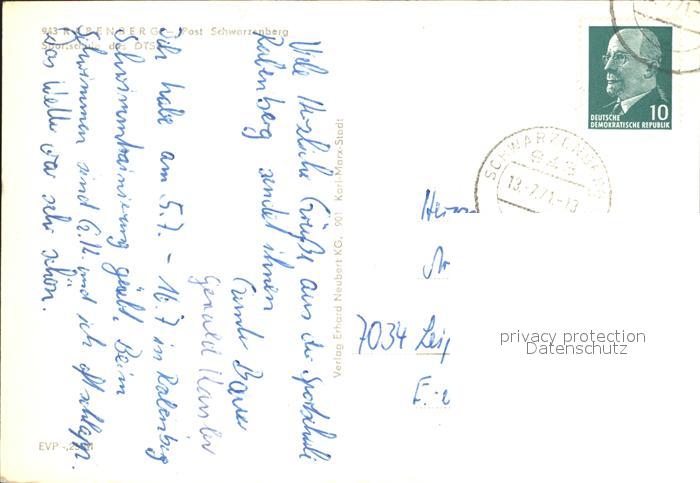 943 RABENBERG - Post Schwarzenberg
Sportschule des DTSB
Viele Herzliche Grüße aus der Sportschule
Rabenberg sendet ihnen
Gerald
Ich habe am 5.7. - 16.7 in Rabenberg
Schwimmtrainierung gehabt. Beim
Schwimmen sind und ich oft schlapp.
Das Wetter war sehr schön.
EVP -,25 M
Verlag Erhard Neubert KG, 901 Karl-Marx-Stadt
10
DEUTSCHE
DEMOKRATISCHE REPUBLIK
SCHWARZENBERG
943
13.-7.71.-13
7034 Leip
privacy protection
Datenschutz